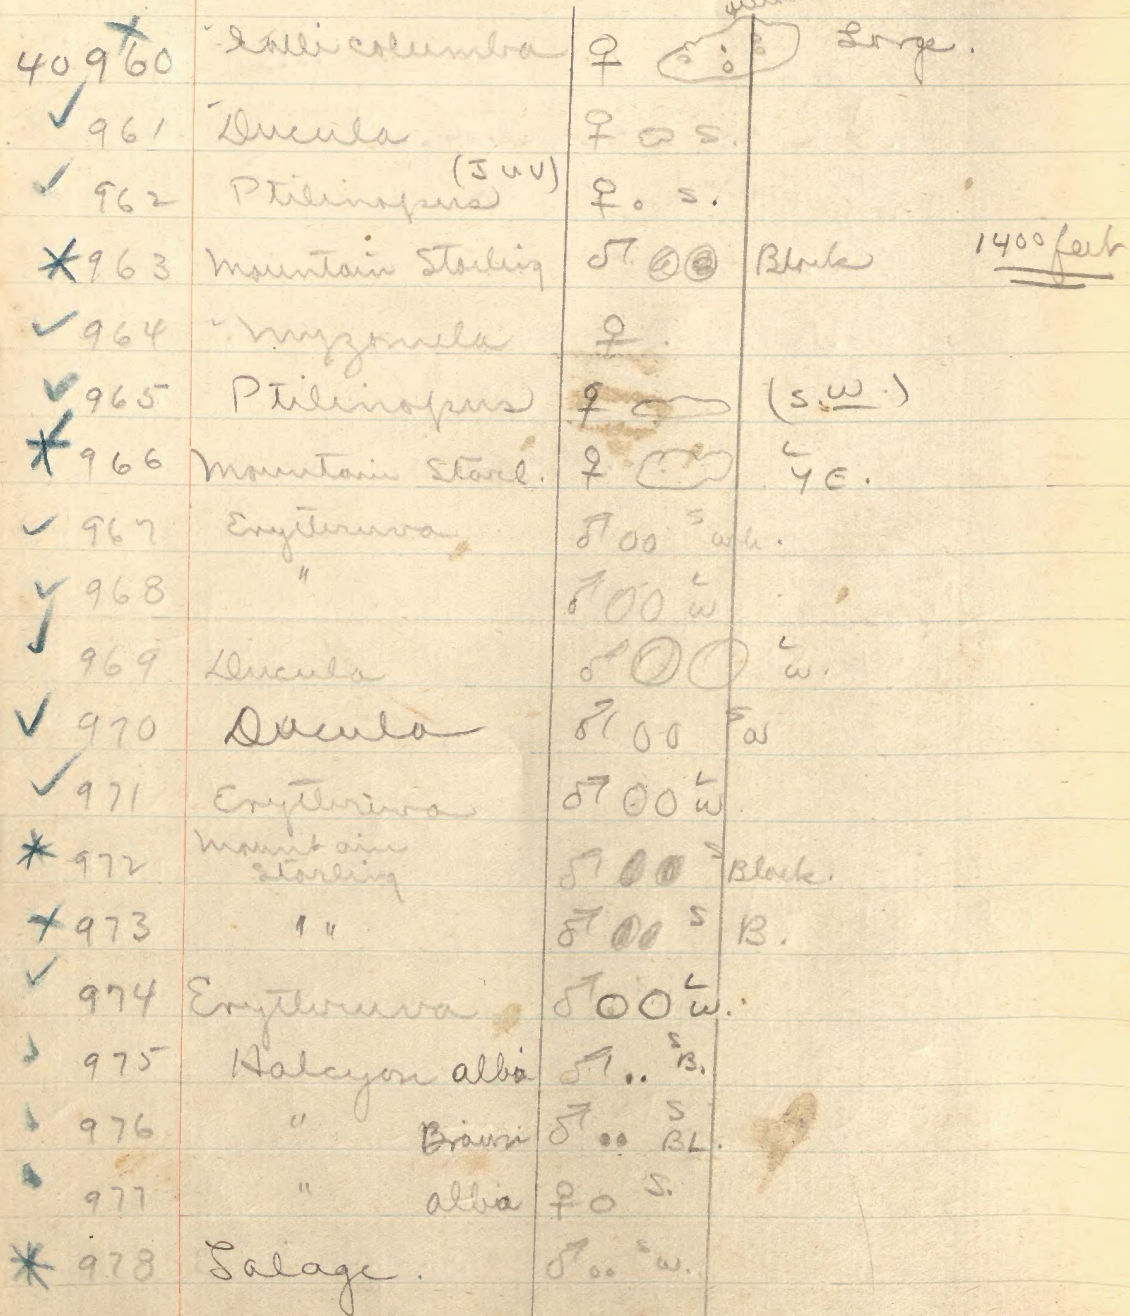 40960 Gallicolumba ♀ Large.
961 Ducula ♀ S.
(Juv)
962 Ptilinopus ♀ S.
963 Mountain Starling ♂ Black 1400 feet
964 Myzomela ♀
965 Ptilinopus ♀ (S.W.)
966 Mountain Starl. ♀ L YE.
967 Erythrura ♂ S wh.
968 " ♂ L W
969 Ducula ♂ L W.
970 Ducula ♂ S W
971 Erythrura ♂ L W
972 Mountain Starling ♂ S Black.
973 " " ♂ S B.
974 Erythrura ♂ L W.
975 Halcyon alba ♂ S B.
976 " Brown ♂ S BL.
977 " alba ♀ S.
978 Lalage. ♂ S W.